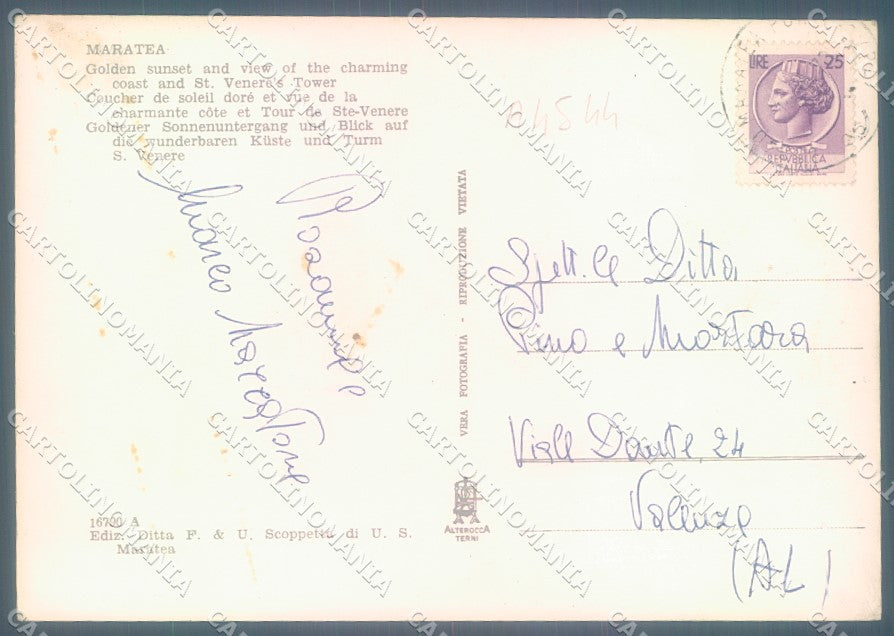 MARATEA
Golden sunset and view of the charming
coast and St. Venere's Tower
Coucher de soleil doré et vue de la
charmante côte et Tour de Ste-Venere
Goldener Sonnenuntergang und Blick auf
die wunderbaren Küste und Turm
S. Venere
LIRE 25
POSTE
REPVBBLICA
ITALIANA
04544
VERA FOTOGRAFIA - RIPRODUZIONE VIETATA
Spett.le Ditta
Pino e Mortara
Viale Dante, 24
Valenza
(AL)
16790 A
Ediz. Ditta F. & U. Scoppetta di U. S.
Maratea
ALTEROCCA
TERNI
CARTOLINOMANIA